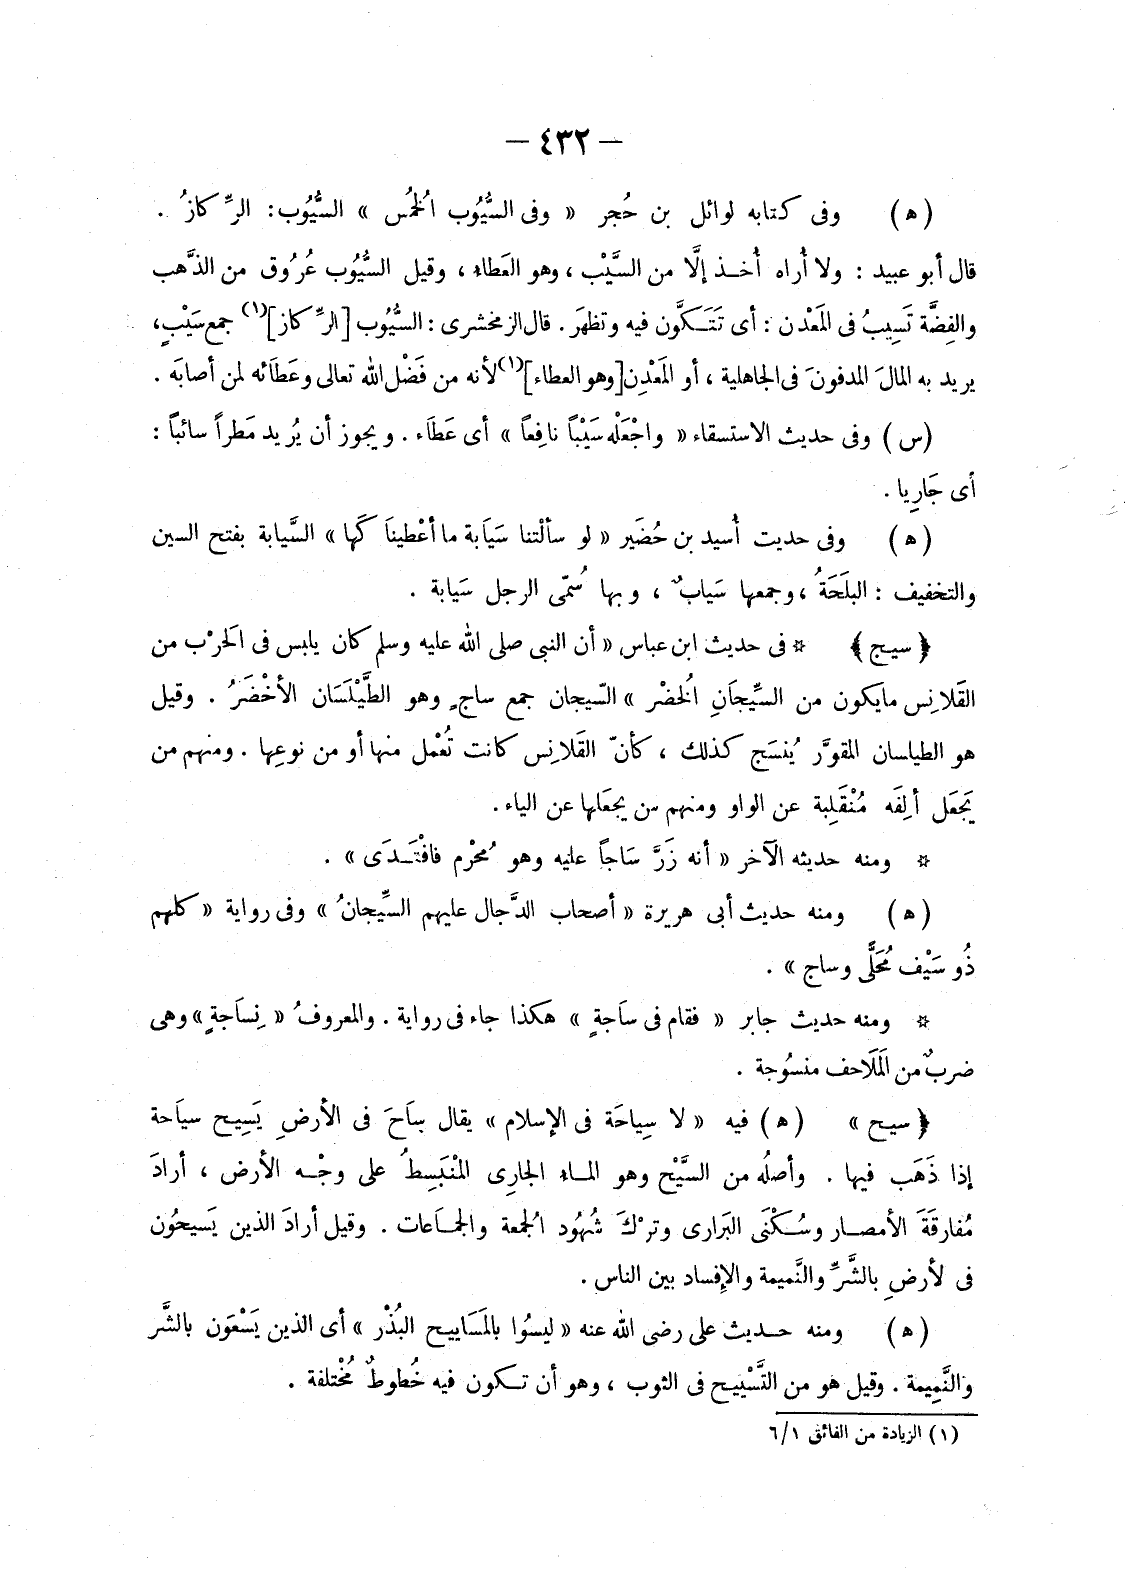 — ٤٣٢ —
(ه) وفى كتابه لوائل بن حُجر « وفى السُّيُوب الْخُمُس » السُّيُوب: الرِّكازُ .
قال أبو عبيد : ولا أُراه أُخذ إلَّا من السَّيْب ، وهو العَطاء ، وقيل السُّيُوب عُرُوق من الذَّهب
والفِضَّة تَسِيبُ فى المَعْدن : أى تَتَكَوَّن فيه وتظهَر . قال الزمخشرى : السُّيُوب [الرِّكاز](١) جمع سَيْبٍ،
يريد به المالَ المدفونَ فى الجاهلية ، أو المَعْدِن [وهو العطاء](١) لأنه من فَضْل الله تعالى وعَطَائه لمن أصابَه .
(س) وفى حديث الاستسقاء « واجْعَلْه سَيْباً نافِعاً » أى عَطَاء . ويجوز أن يُريد مَطراً سائباً :
أى جَارِيا .
(ه) وفى حديث أُسيد بن حُضَير « لو سألْتنا سَيَابة ما أعْطيناَكَها » السَّيابة بفتح السين
والتخفيف : البلَحَةُ ، وجمعها سَيابٌ ، وبها سُمّى الرجل سَيَابة .
﴿ سيج ﴾ * فى حديث ابن عباس « أن النبى صلى الله عليه وسلم كان يلبس فى الحَرْب من
القَلانِس مايكون من السِّيجَانِ الْخُضْر » السّيجان جمع ساجٍ وهو الطَّيْلَسَان الأخْضَرُ . وقيل
هو الطيلسان المقوَّر يُنسَج كذلك ، كأنّ القَلانِس كانت تُعْمل منها أو من نوعِها . ومنهم من
يَجعَل ألِفَه مُنْقَلِبة عن الواو ومنهم من يجعَلها عن الياء.
* ومنه حديثه الآخر « أنه زَرَّ سَاجاً عليه وهو مُحْرْم فافْتَـدَى » .
(ه) ومنه حديث أبى هريرة « أصحاب الدَّجال عليهم السِّيجانُ » وفى رواية « كلهم
ذُو سَيْف مُحَلًّى وساج » .
* ومنه حديث جابر « فقام فى ساَجةٍ » هكذا جاء فى رواية . والمعروفُ « نِساَجةٍ » وهى
ضربٌ من المَلَاحف منسُوجة .
﴿ سيح » (ه) فيه « لا سِياحَة فى الإسلام » يقال ساَحَ فى الأرضِ يَسِيح سياَحة
إذا ذَهَب فيها . وأصلُه من السَّيْح وهو المـاء الجارِى المنْبَسِطُ على وجْـه الأرض ، أرادَ
مُفارقَةَ الأمصـار وسُـكْنَى البَرارى وترْكَ شُهُود الْجُمعة والجمَاعات . وقيل أرادَ الذين يَسيحُون
فى لأرضِ بالشَّرِّ والنَّميمة والإفساد بين الناس .
(ه) ومنه حـديث على رضى الله عنه « ليسُوا بالمَسَاييح البُذْر » أى الذين يَسْعَون بالشَّر
والنَّمِيمة . وقيل هو من التَّسْييح فى الثوب ، وهو أن تـكون فيه خُطوطٌ مُخْتلفة .
(١) الزيادة من الفائق ٦/١